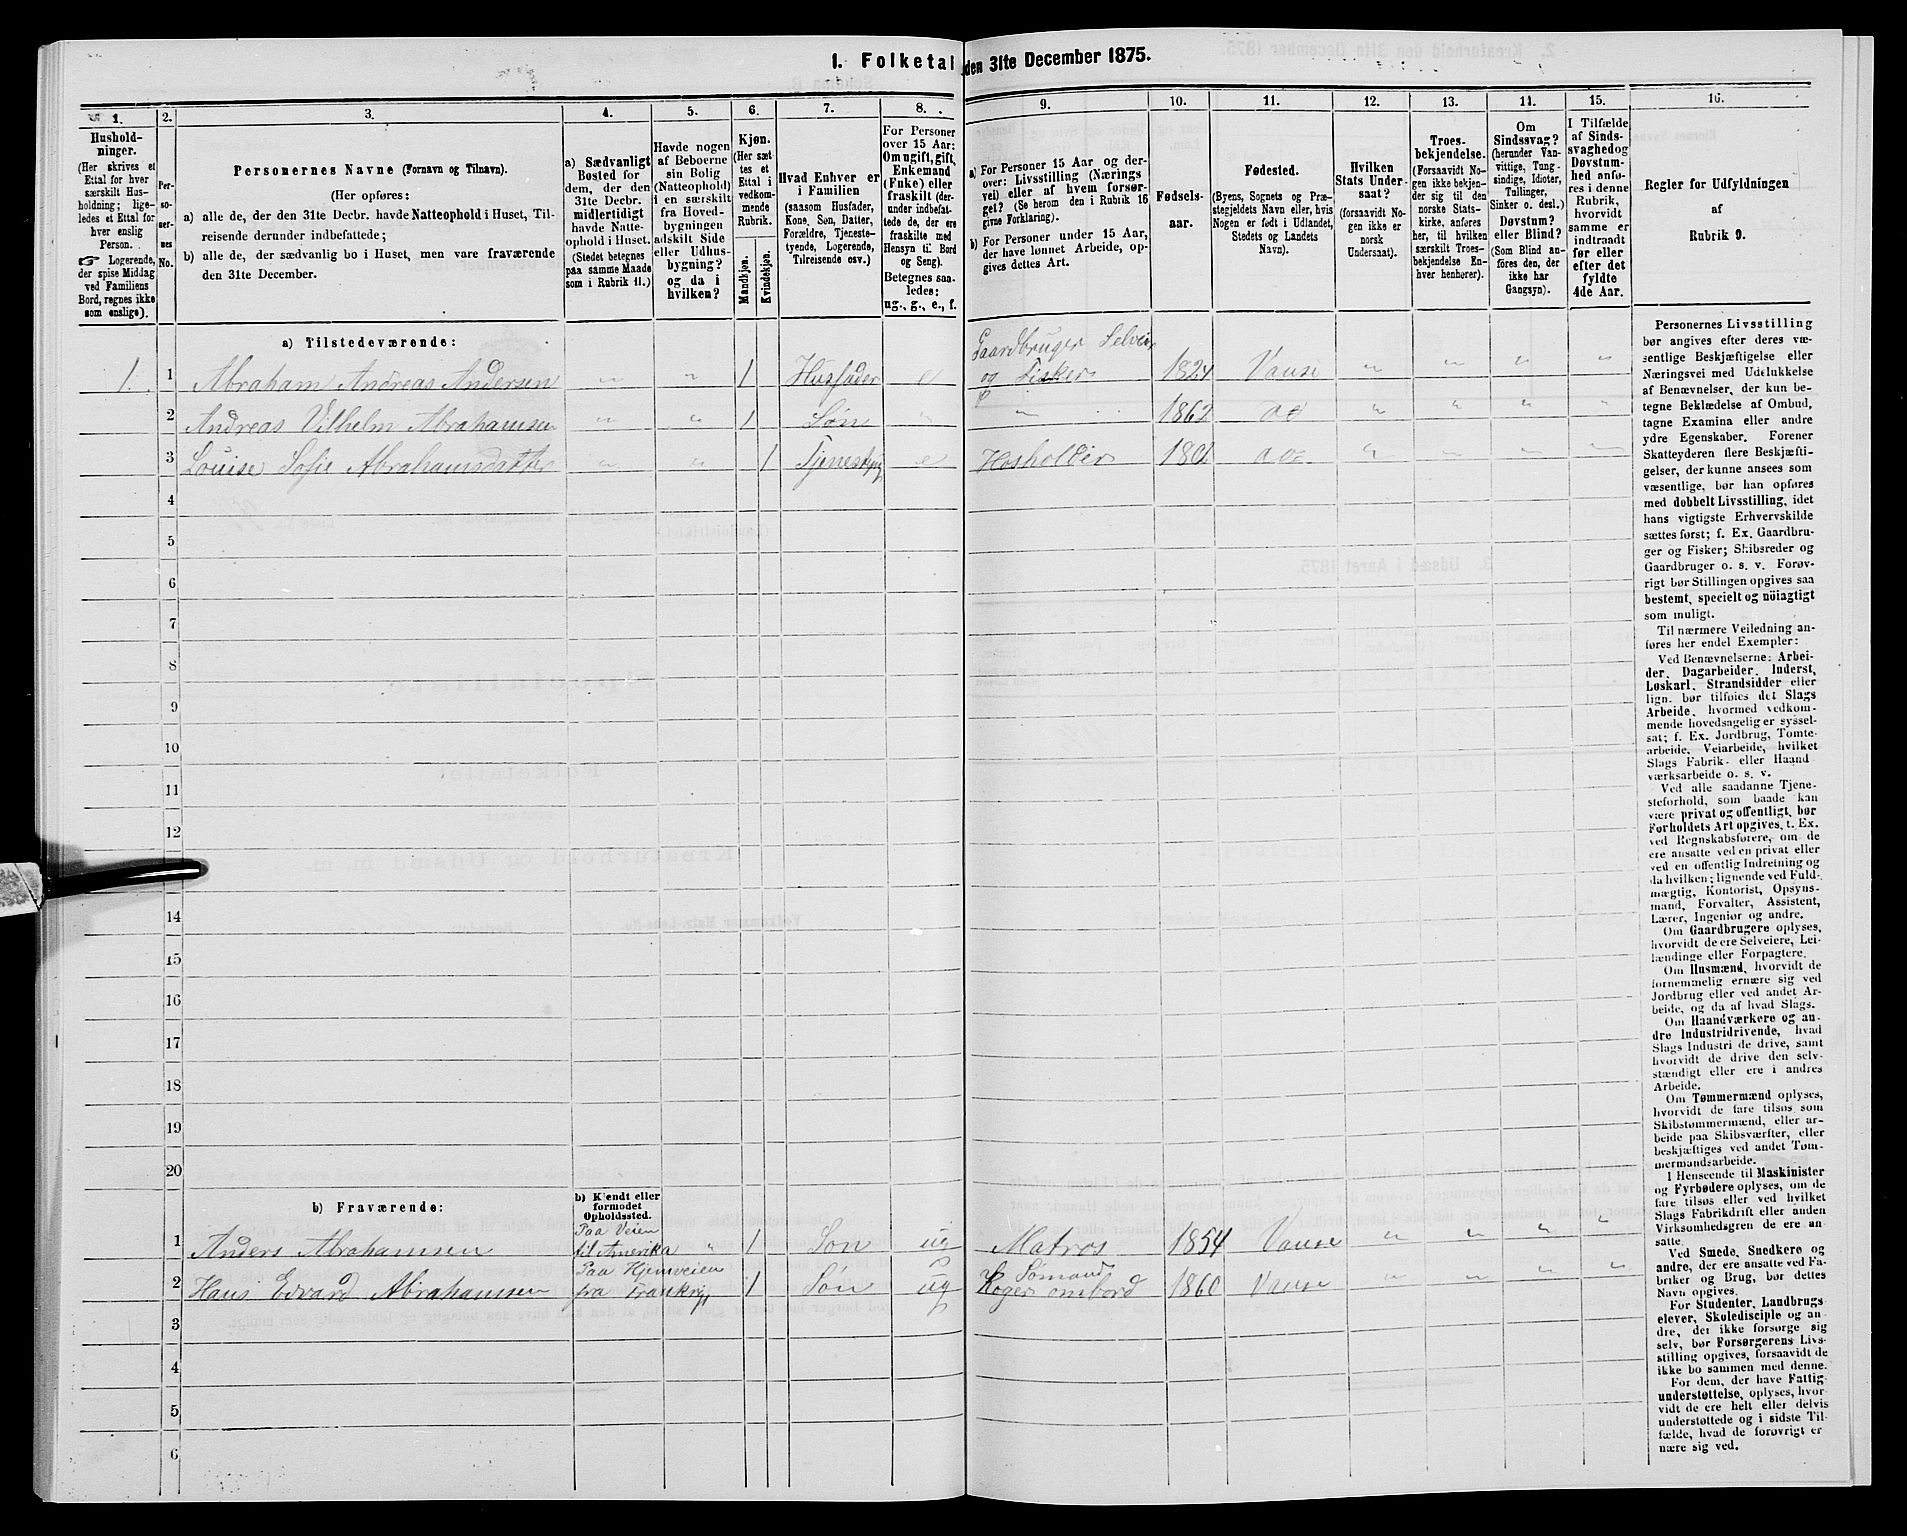 1. Folketal den 31te December 1875.
1.
2.
3.
4.
5.
6.
7.
8.
9.
10.
11.
12.
13.
14.
15.
16.
Hushold-
ninger.
(Her skrives et
Ettal for hver
særskilt Hus-
holdning; lige-
ledes et Ettal for
hver enslig
Person.
☞ Logerende,
der spise Middag
ved Familiens
Bord, regnes ikke
som enslige).
Per-
so-
ner-
nes
No.
Personernes Navne (Fornavn og Tilnavn).
(Her opføres:
a) alle de, der den 31te Decbr. havde Natteophold i Huset, Til-
reisende derunder indbefattede;
b) alle de, der sædvanlig bo i Huset, men vare fraværende
den 31te December.
a) Sædvanligt
Bosted for
dem, der den
31te Decbr.
midlertidigt
havde Natte-
ophold i Huset.
(Stedet betegnes
paa samme Maade
som i Rubrik 11.)
Havde nogen
af Beboerne
sin Bolig
(Natteophold)
i en særskilt
fra Hoved-
bygningen
adskilt Side
eller Udhus-
bygning?
og da i
hvilken?
Kjøn.
(Her sæt
tes et
Ettal i
vedkom-
mende
Rubrik.
Mandkjøn.
Kvindekjøn.
Hvad Enhver er
i Familien
(saasom Husfader,
Kone, Søn, Datter,
Forældre, Tjeneste-
tyende, Logerende,
Tilreisende osv.)
For Personer
over 15 Aar:
Om ugift, gift,
Enkemand
(Enke) eller
fraskilt (der-
under indbefat-
tede de, der ere
fraskilte med
Hensyn til Bord
og Seng).
Betegnes saa-
ledes:
ug., g., e., f.
a) For Personer 15 Aar og der-
over: Livsstilling (Nærings
vei) eller af hvem forsør-
get? (Se herom den i Rubrik 16
givne Forklaring).
b) For Personer under 15 Aar,
der have lønnet Arbeide, op-
gives dettes Art.
Fødsels-
aar.
Fødested.
(Byens, Sognets og Præ-
stegjeldets Navn eller, hvis
Nogen er født i Udlandet,
Stedets og Landets
Navn).
Hvilken
Stats Under-
saat?
(forsaavidt No-
gen ikke er
norsk
Undersaat).
Troes-
bekjendelse.
(Forsaavidt No-
gen ikke bekjen-
der sig til den
norske Stats-
kirke, anføres
her, til hvilken
særskilt Troes-
bekjendelse En-
hver henhører).
Om
Sindssvag?
(herunder Van-
vittige, Tung-
sindige, Idioter,
Tullinger,
Sinker o. desl.)
Døvstum?
eller Blind?
(Som Blind an-
føres den, der
ikke har
Gangsyn).
I Tilfælde
af Sinds-
svaghed og
Døvstum-
hed anfø-
res i denne
Rubrik,
hvorvidt
samme er
indtraadt
før eller
efter det
fyldte
4de Aar.
Regler for Udfyldningen
af
Rubrik 9.
a) Tilstedeværende:
1 1 Abraham Andreas Andersen " " 1 Husfader e Gaardbruger Selveier
og Fisker 1824 Vanse " " " "
2 Andreas Vilhelm Abrahamsen " " 1 Søn " " 1862 " " " "
3 Louise Sofie Abrahamsdatter " " 1 e Hosholder " " " "
4
5
6
7
8
9
10
11
12
14
15
16
17
18
19
20
b) Fraværende:
b) Kjendt eller
formodet
Opholdssted.
1 Anders Abrahamsen Paa Veien
til Amerika " 1 Søn ug Matros 1854 Vanse " " " "
2 Hans Edvard Abrahamsen Paa Hjemveien
fra Frankrig 1 Søn ug Sømand
ombord 1860 Vanse " " " "
3
4
5
6
Personernes Livsstilling
bør angives efter deres væ-
sentlige Beskjæftigelse eller
Næringsvei med Udelukkelse
af Benævnelser, der kun be-
tegne Beklædelse af Ombud,
tagne Examina eller andre
ydre Egenskaber. Forener
Skatteyderen flere Beskjæfti-
gelser, der kunne ansees som
væsentlige, bør han opføres
med dobbelt Livsstilling, idet
hans vigtigste Erhvervskilde
sættes først; f. Ex. Gaardbru-
ger og Fisker; Skibsreder og
Gaardbruger o. s. v. Forøv-
rigt bør Stillingen opgives saa
bestemt, specielt og nöiagtigt
som muligt.
Til nærmere Veiledning an-
føres her endel Exempler:
Ved Benævnelserne: Arbei-
der, Dagarbeider, Inderst,
Løskarl, Strandsidder eller
lign. bør tilføies det Slags
Arbeide, hvormed vedkom-
mende hovedsagelig er syssel-
sat; f. Ex. Jordbrug, Tomte-
arbeide, Veiarbeide, hvilket
Slags Fabrik- eller Haand
værksarbeide o. s. v.
Ved alle saadanne Tjene-
steforhold, som baade kan
være privat og offentligt, bør
Forholdets Art opgives, t. Ex.
ved Regnskabsførere, om de
ere ansatte ved en privat eller
ved en offentlig Indretning og
da hvilken; lignende ved Fuld-
mægtig, Kontorist, Opsyns-
mand, Forvalter, Assistent,
Lærer, Ingeniør og andre.
Om Gaardbrugere oplyses,
hvorvidt de ere Selveiere, Lei-
lændinge eller Forpagtere.
Om Husmænd, hvorvidt de
fornemmelig ernære sig ved
Jordbrug eller ved andet Ar-
beide, og da af hvad Slags.
Om Haandværkere og an-
dre Industridrivende, hvad
Slags Industri de drive, samt
hvorvidt de drive den selv-
stændigt eller ere i andres
Arbeide.
Om Tømmermænd oplyses,
hvorvidt de fare tilsøs som
Skibstømmermænd, eller ar-
beide paa Skibsværfter, eller
beskjæftiges ved andet Tøm-
mermandsarbeide.
I Henseende til Maskinister
og Fyrbødere oplyses, om de
fare tilsøs eller ved hvilket
Slags Fabrikdrift eller anden
Virksomhedsgren de ere an-
satte.
Ved Smede, Snedkere og
andre, der ere ansatte ved Fa-
briker og Brug, bør dettes
Navn opgives.
For Studenter, Landbrugs
elever, Skoledisciple og an-
dre, der ikke forsørge sig
selv, bør Forsørgerens Livs-
stilling opgives, forsaavidt de
ikke bo sammen med denne.
For dem, der have Fattig-
understøttelse, oplyses, hvor-
vidt de ere helt eller delvis
understøttede og i sidste Til-
fælde, hvad de forøvrigt er
nære sig ved.